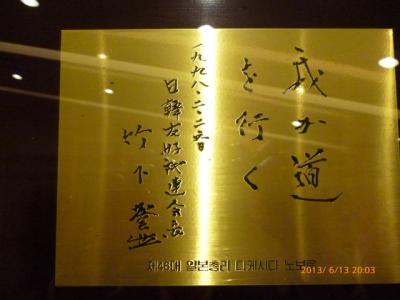 我が道
を行く
一九九八・二・二五日
日韓友好議連会長
竹下登
제46대 일본총리 다케시다 노보루
2013/ 6/13 20:03